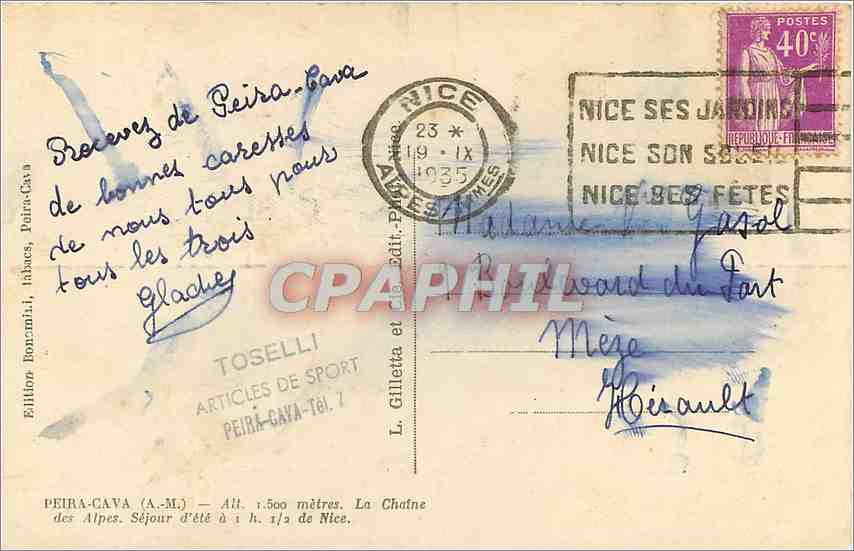 Recevez de Peira-Cava
de bonnes caresses
de nous tous pour
tous les trois
Gladys
TOSELLI
ARTICLES DE SPORT
PEIRA-CAVA-Tél. 7
PEIRA-CAVA (A.-M.) — Alt. 1.500 mètres. La Chaîne
des Alpes. Séjour d'été à 1 h. 1/2 de Nice.
Edition Bonomini, tabacs, Peira-Cava
L. Gilletta et Cie. Edit.-Phot. Nice
CPAPHIL
NICE
23 *
19 · IX
1935
ALPES MMES
NICE SES JARDINS
NICE SON
NICE SES FÊTES
POSTES
40c
REPUBLIQUE-FRANÇAISE
Madame Gasol
Boulevard du Port
Mèze
Hérault